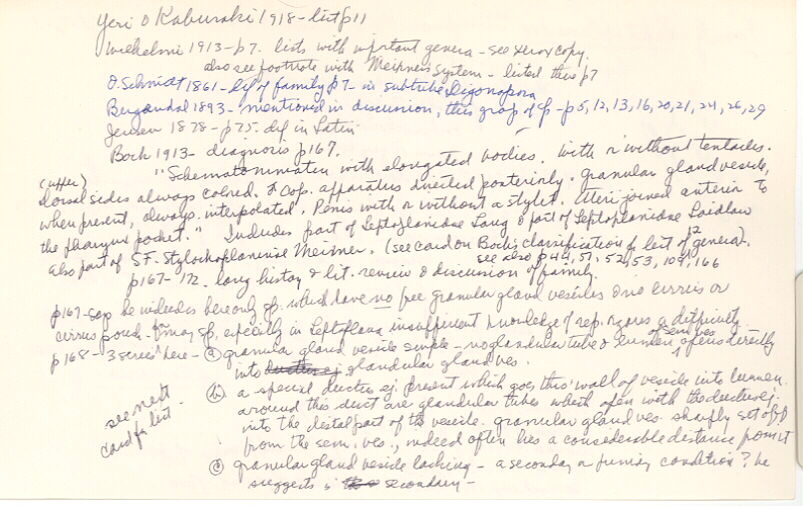 Yeri & Kaburaki 1918 - list p11
Wilhelmi 1913 - p7. lists with important genera - see xerox copy.
also see footnote with Meixner's System - listed there p7
O. Schmidt 1861 - dif of family p7 - in subtribe Digonopora
Bergendal 1893 - mentioned in discussion, this group of sp - p5, 12, 13, 16, 20, 21, 24, 26, 29
Jensen 1878 - p75. dif in Latin
Bock 1913 - diagnosis p167.
"Schematommaten with elongated bodies. With or without tentacles.
(upper)
Dorsal sides always colored. ♂ Cop. apparatus directed posteriorly. granular gland vesicle,
when present, always interpolated. Penis with or without a stylet. Uteri joined anterior to
the pharynx pocket." Includes part of Leptoplanidae Lang & part of Leptoplanidae Laidlaw
also part of SF. Stylochoplaninae Meixner. (see card on Bock's classification & list of genera).
see also p 44, 51, 52, 53, 109, 166
p167-172. long history & lit. review & discussion of family.
p167 - Says he includes here only sp. which have no free granular gland vesicles & no cirrus or
cirrus pouch. For many sp. especially in Leptoplana insufficient knowledge of rep. organs a difficulty.
p168 - 3 series here - (a) granular gland vesicle simple - no glandular tube & lumen of sem ves opens directly
into ductus ej glandular gland ves.
(b) a special ductus ej present which goes thru wall of vesicle into lumen.
around this duct are glandular tubes which open with the ductus ej.
into the distal part of the vesicle. granular gland ves. sharply set off
from the sem. ves., indeed often lies a considerable distance from it
see next
card for list
(c) granular gland vesicle lacking - a secondary or primary condition? he
suggests is secondary -